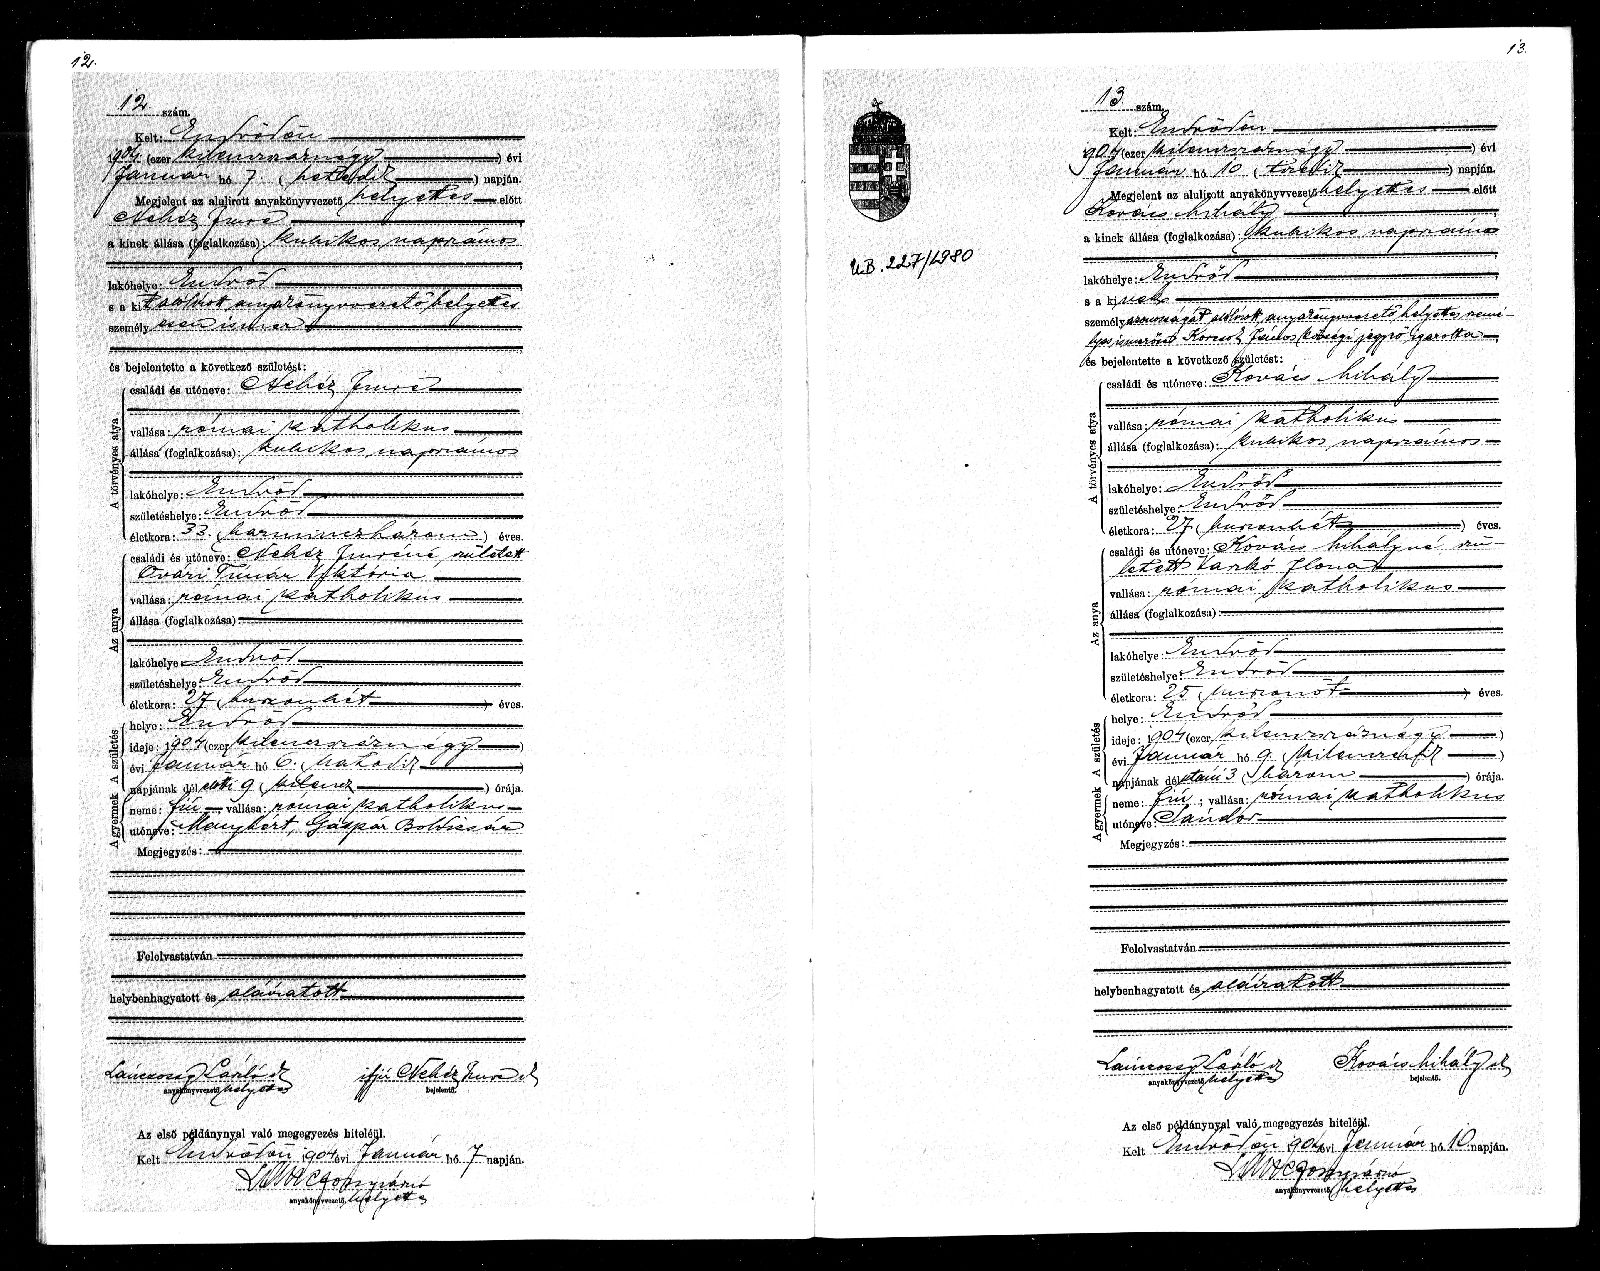 12.
12 szám.
Kelt: Endrődön
1904. (ezer kilencszáznégy) évi
Január hó 7 (hetedik) napján.
Megjelent az alulirott anyakönyvvezető helyettes előtt
Nehéz Imre
a kinek állása (foglalkozása): kubikos napszámos
lakóhelye: Endrőd
s a kit alulirott anyakönyvvezető helyettes
személyesen ismer
és bejelentette a következő születést:
A törvényes atya
családi és utóneve: Nehéz Imre
vallása: római katholikus
állása (foglalkozása): kubikos napszámos
lakóhelye: Endrőd
születéshelye: Endrőd
életkora: 33. (harminczhárom) éves.
Az anya
családi és utóneve: Nehéz Imréné, született
Óvári Timár Viktória
vallása: római katholikus
állása (foglalkozása)
lakóhelye Endrőd
születéshelye: Endrőd
életkora: 27 (huszonhét) éves.
A születés
helye: Endrőd
ideje: 1904 (ezer kilencszáznégy)
évi Január hó 6. (hatodik)
napjának dél előtti 9 (kilencz) órája.
A gyermek
neme: fiú, vallása: római katholikus
utóneve: Menyhért, Gáspár Boldizsár
Megjegyzés:
Felolvastatván
helybenhagyatott és aláiratott
László
anyakönyvvezető helyettes
ifjú Nehéz Imre
bejelentő.
Az első példánynyal való megegyezés hiteléül.
Kelt Endrődön 1904 évi Január hó 7 napján.
anyakönyvvezető, helyettes
13.
13 szám.
Kelt: Endrődön
1904 (ezer kilencszáznégy) évi
Január hó 10 (tizedik) napján.
Megjelent az alulirott anyakönyvvezető helyettes előtt
Kovács Mihály
a kinek állása (foglalkozása): kubikos napszámos
lakóhelye: Endrőd
s a kinek
személyazonosságát alulirott, anyakönyvvezető helyettes szemé-
lyes ismerőse János községi jegyző igazolta
és bejelentette a következő születést:
A törvényes atya
családi és utóneve: Kovács Mihály
vallása: római katholikus
állása (foglalkozása): kubikos napszámos
lakóhelye: Endrőd
születéshelye: Endrőd
életkora: 27 (huszonhét) éves.
Az anya
családi és utóneve: Kovács Mihályné szü-
letett Ilona
vallása: római katholikus
állása (foglalkozása)
lakóhelye Endrőd
születéshelye: Endrőd
életkora: 25 (huszonöt) éves.
A születés
helye: Endrőd
ideje: 1904 (ezer kilencszáznégy)
évi Január hó 9. (kilenczedik)
napjának dél utáni 3 (három) órája.
A gyermek
neme: fiú; vallása: római katholikus
utóneve: Sándor
Megjegyzés:
Felolvastatván
helybenhagyatott és aláiratott
László
anyakönyvvezető helyettes
Kovács Mihály
bejelentő.
Az első példánynyal való megegyezés hiteléül.
Kelt Endrődön 1904 évi Január hó 10 napján.
anyakönyvvezető helyettes
U.B. 227/1980